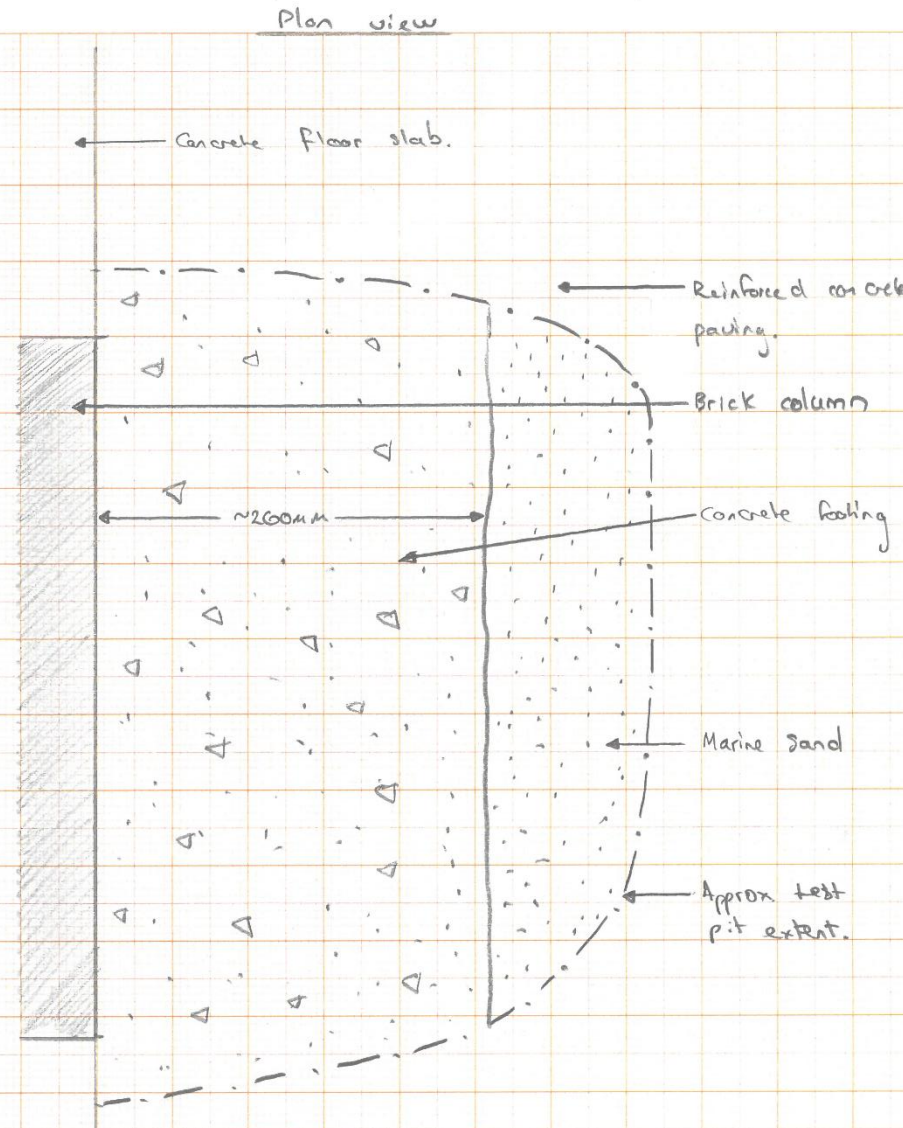 Plan view
Concrete floor slab.
Reinforced concrete
paving.
Brick column
~260mm
Concrete footing
Marine sand
Approx test
pit extent.